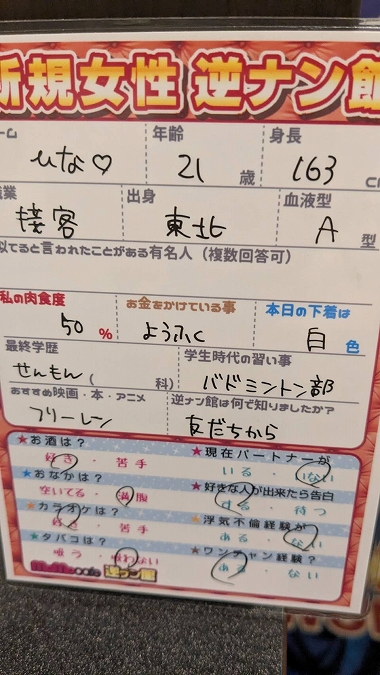 新規女性 逆ナン館
ーム 年齢 身長
ひな♡ 21 歳 163 c
職業 出身 血液型
接客 東北 A 型
似てると言われたことがある有名人（複数回答可）
私の肉食度 お金をかけている事 本日の下着は
50 % ようふく 白 色
最終学歴 学生時代の習い事
せんもん ( 科) バドミントン部
おすすめ映画・本・アニメ 逆ナン館は何で知りましたか？
フリーレン 友だちから
★お酒は？ ★現在パートナーが
好き・苦手 いる・いない
★おなかは？ ★好きな人が出来たら告白
空いてる・満腹 する・待つ
★カラオケは？ ★浮気不倫経験が
好き・苦手 ある・ない
★タバコは？ ★ワンチャン経験？
吸う・吸わない ある・ない
cafe 逆ナン館